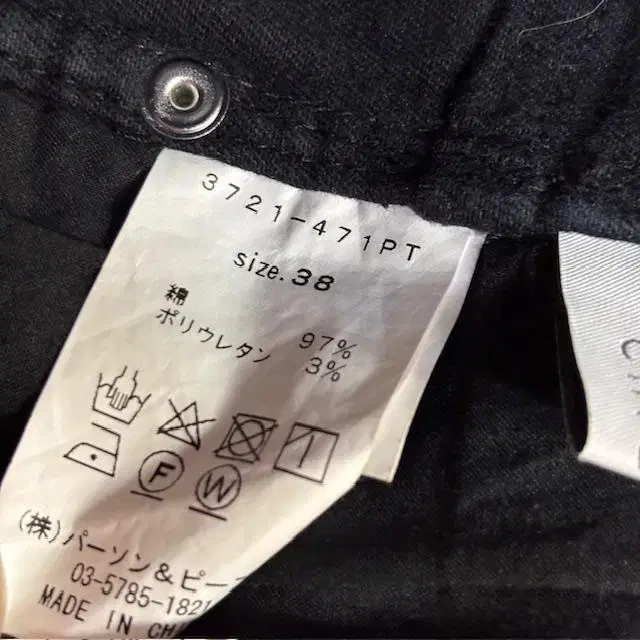 3721-471PT
size.38
綿 97%
ポリウレタン 3%
F W
(株)パーソン&ピー
03-5785-1821
MADE IN CHI